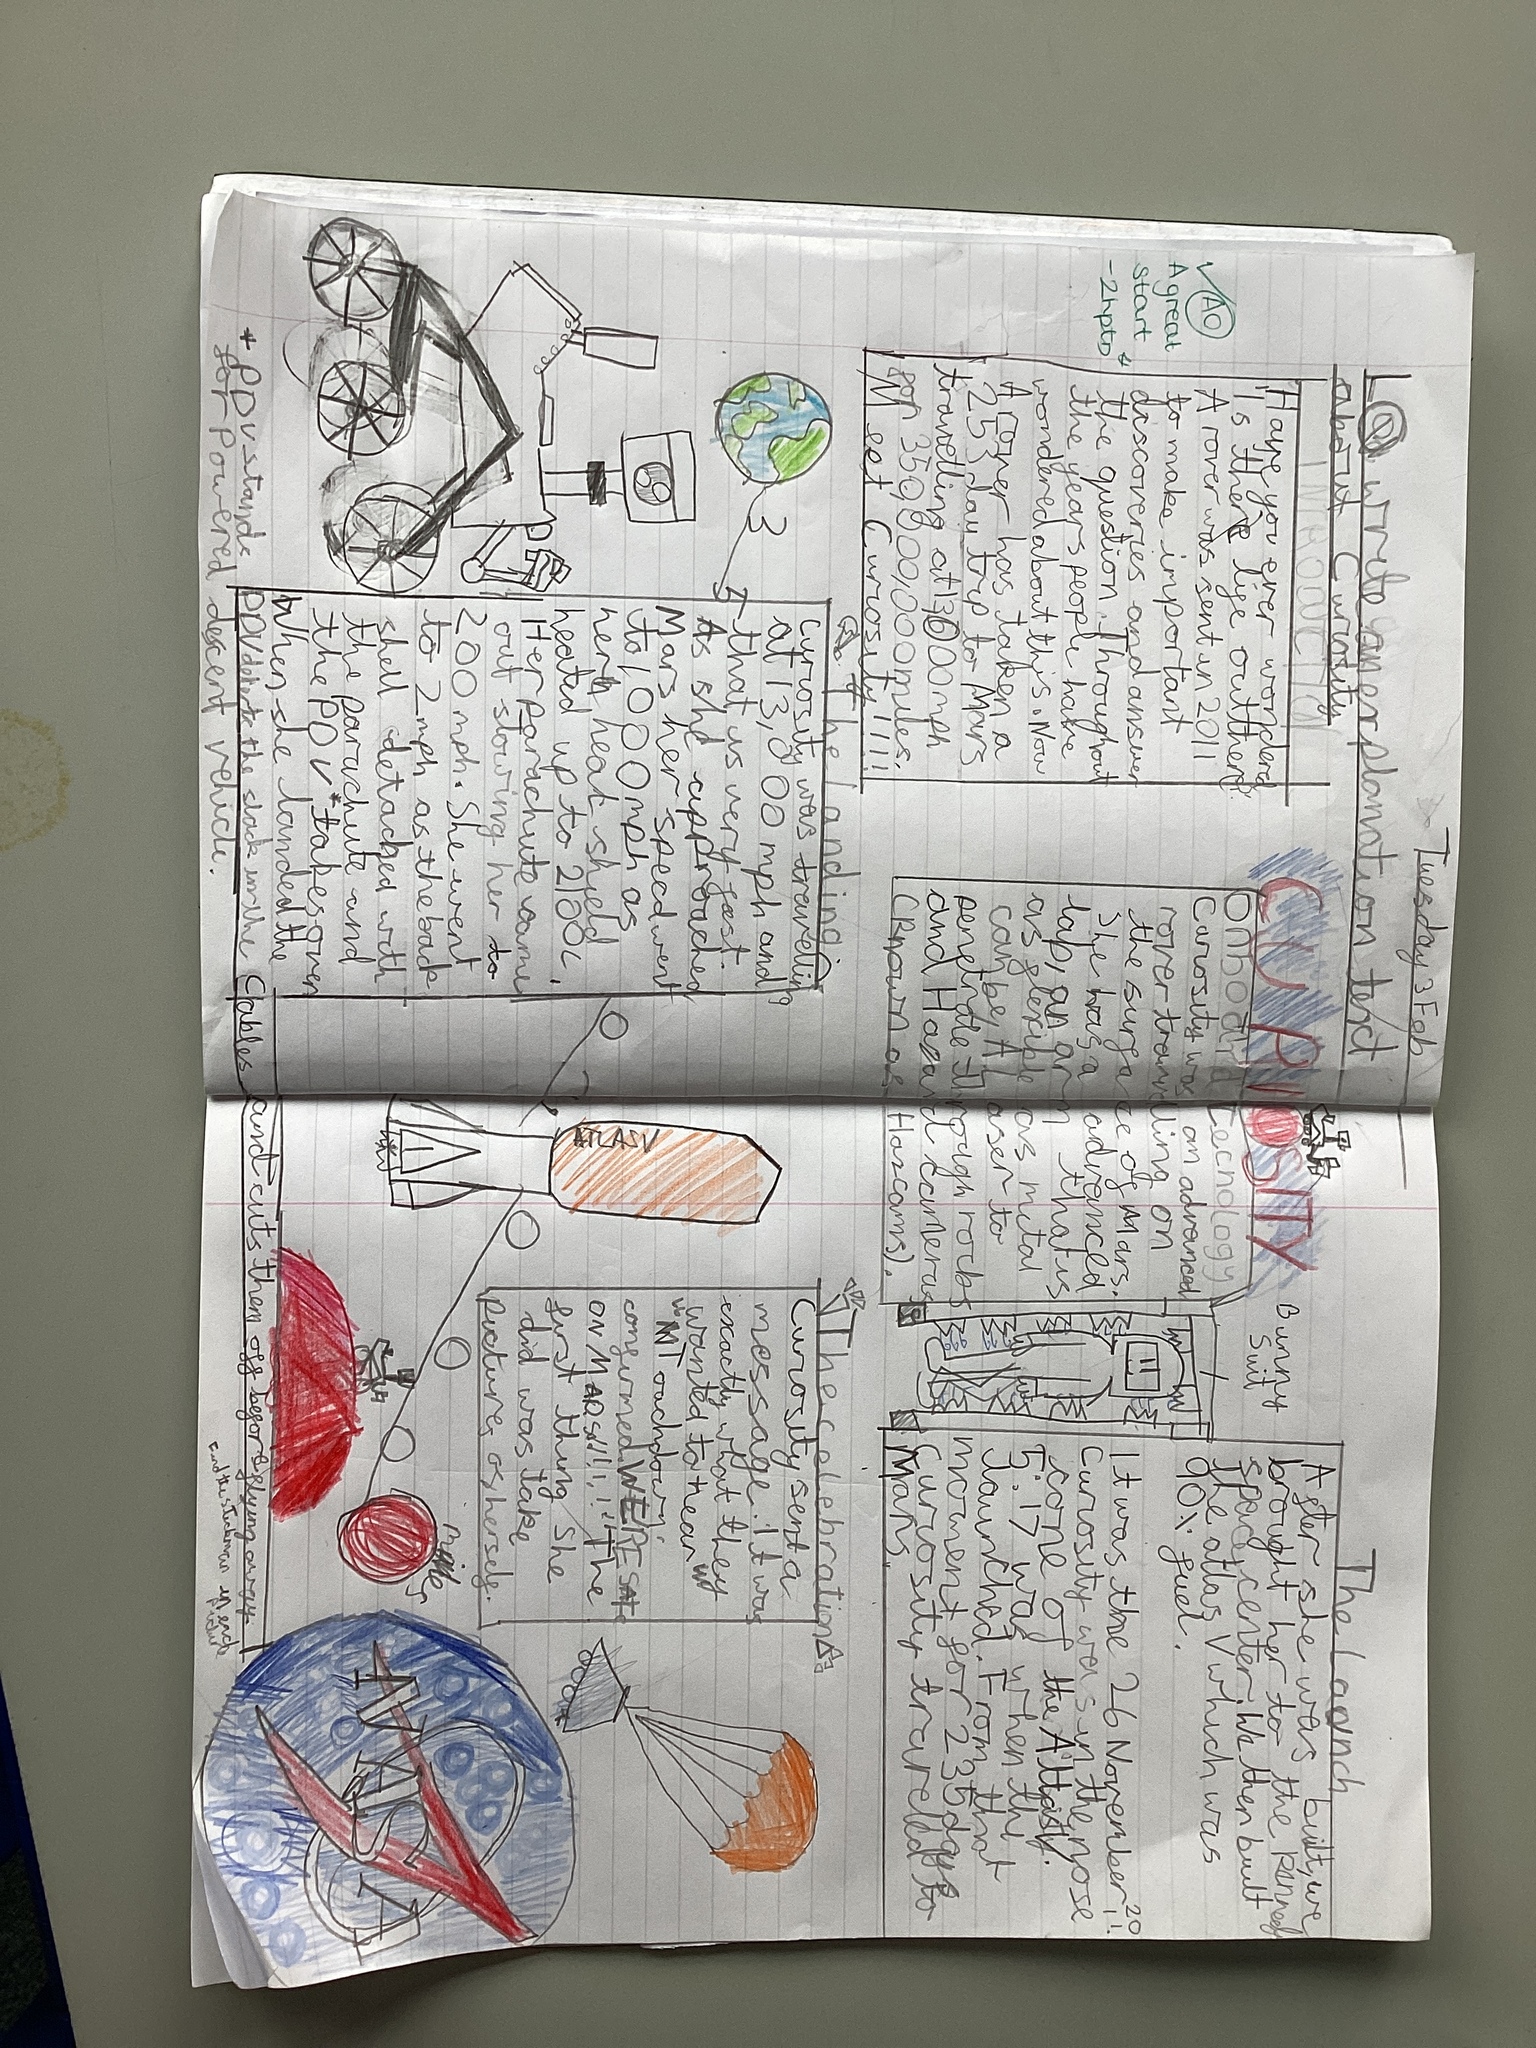 Tuesday 3 Feb
LO write an explanation text
about Curiosity
AO
A great
start
-2hpts
INRODUCTIO
Have you ever wonderd
Is there life out there?
A rover was sent in 2011
to make important
discoveries and answer
the question. Throughout
the years people have
wondered about this. Now
A rover has taken a
253 day trip to Mars
travelling at 13,000mph
for 350,000,000 miles.
Meet Curiosity!!!!
CURIOSITY
Onbodrd Tecnology
Curiosity was an advanced
rover travelling on
the surface of Mars.
She has a advanced
lap, an arm that is
as flexible as metal
can be, A laser to
penetrate through rocks
and Hazard cameras
(Known as Hazcams).
Bunny
Suit
The Launch
After she was built, we
brought her to the kennedy
space center. We then built
the atlas V which was
90% fuel.
It was the 26 November 2011.
Curiosity was in the nose
cone of the Atlas V.
5:17 was when the
launched. From that
moment for 235 days
Curiosity travelled to
Mars.
The landing
Curiosity was travelling
at 13,000 mph and
that is very fast.
As she approached
Mars her speed went
to 1,000mph as
her heat shield
heated up to 2100c.
Her parachute came
out slowing her to
200 mph. She went
to 2 mph as the back
shell detached with
the parachute and
the PDV* takes over
When she landed the
PDV detects the slack in the Cables and cuts them off before flying away.
* PDV stands
for Powered descent vehicle.
ATLAS V
The celebration
Curiosity sent a
message. It was
exactly what they
wanted to hear
Touchdown
confirmed WERE SAFE
ON MARS!!!!!! The
first thing she
did was take
pictures of herself.
NASA